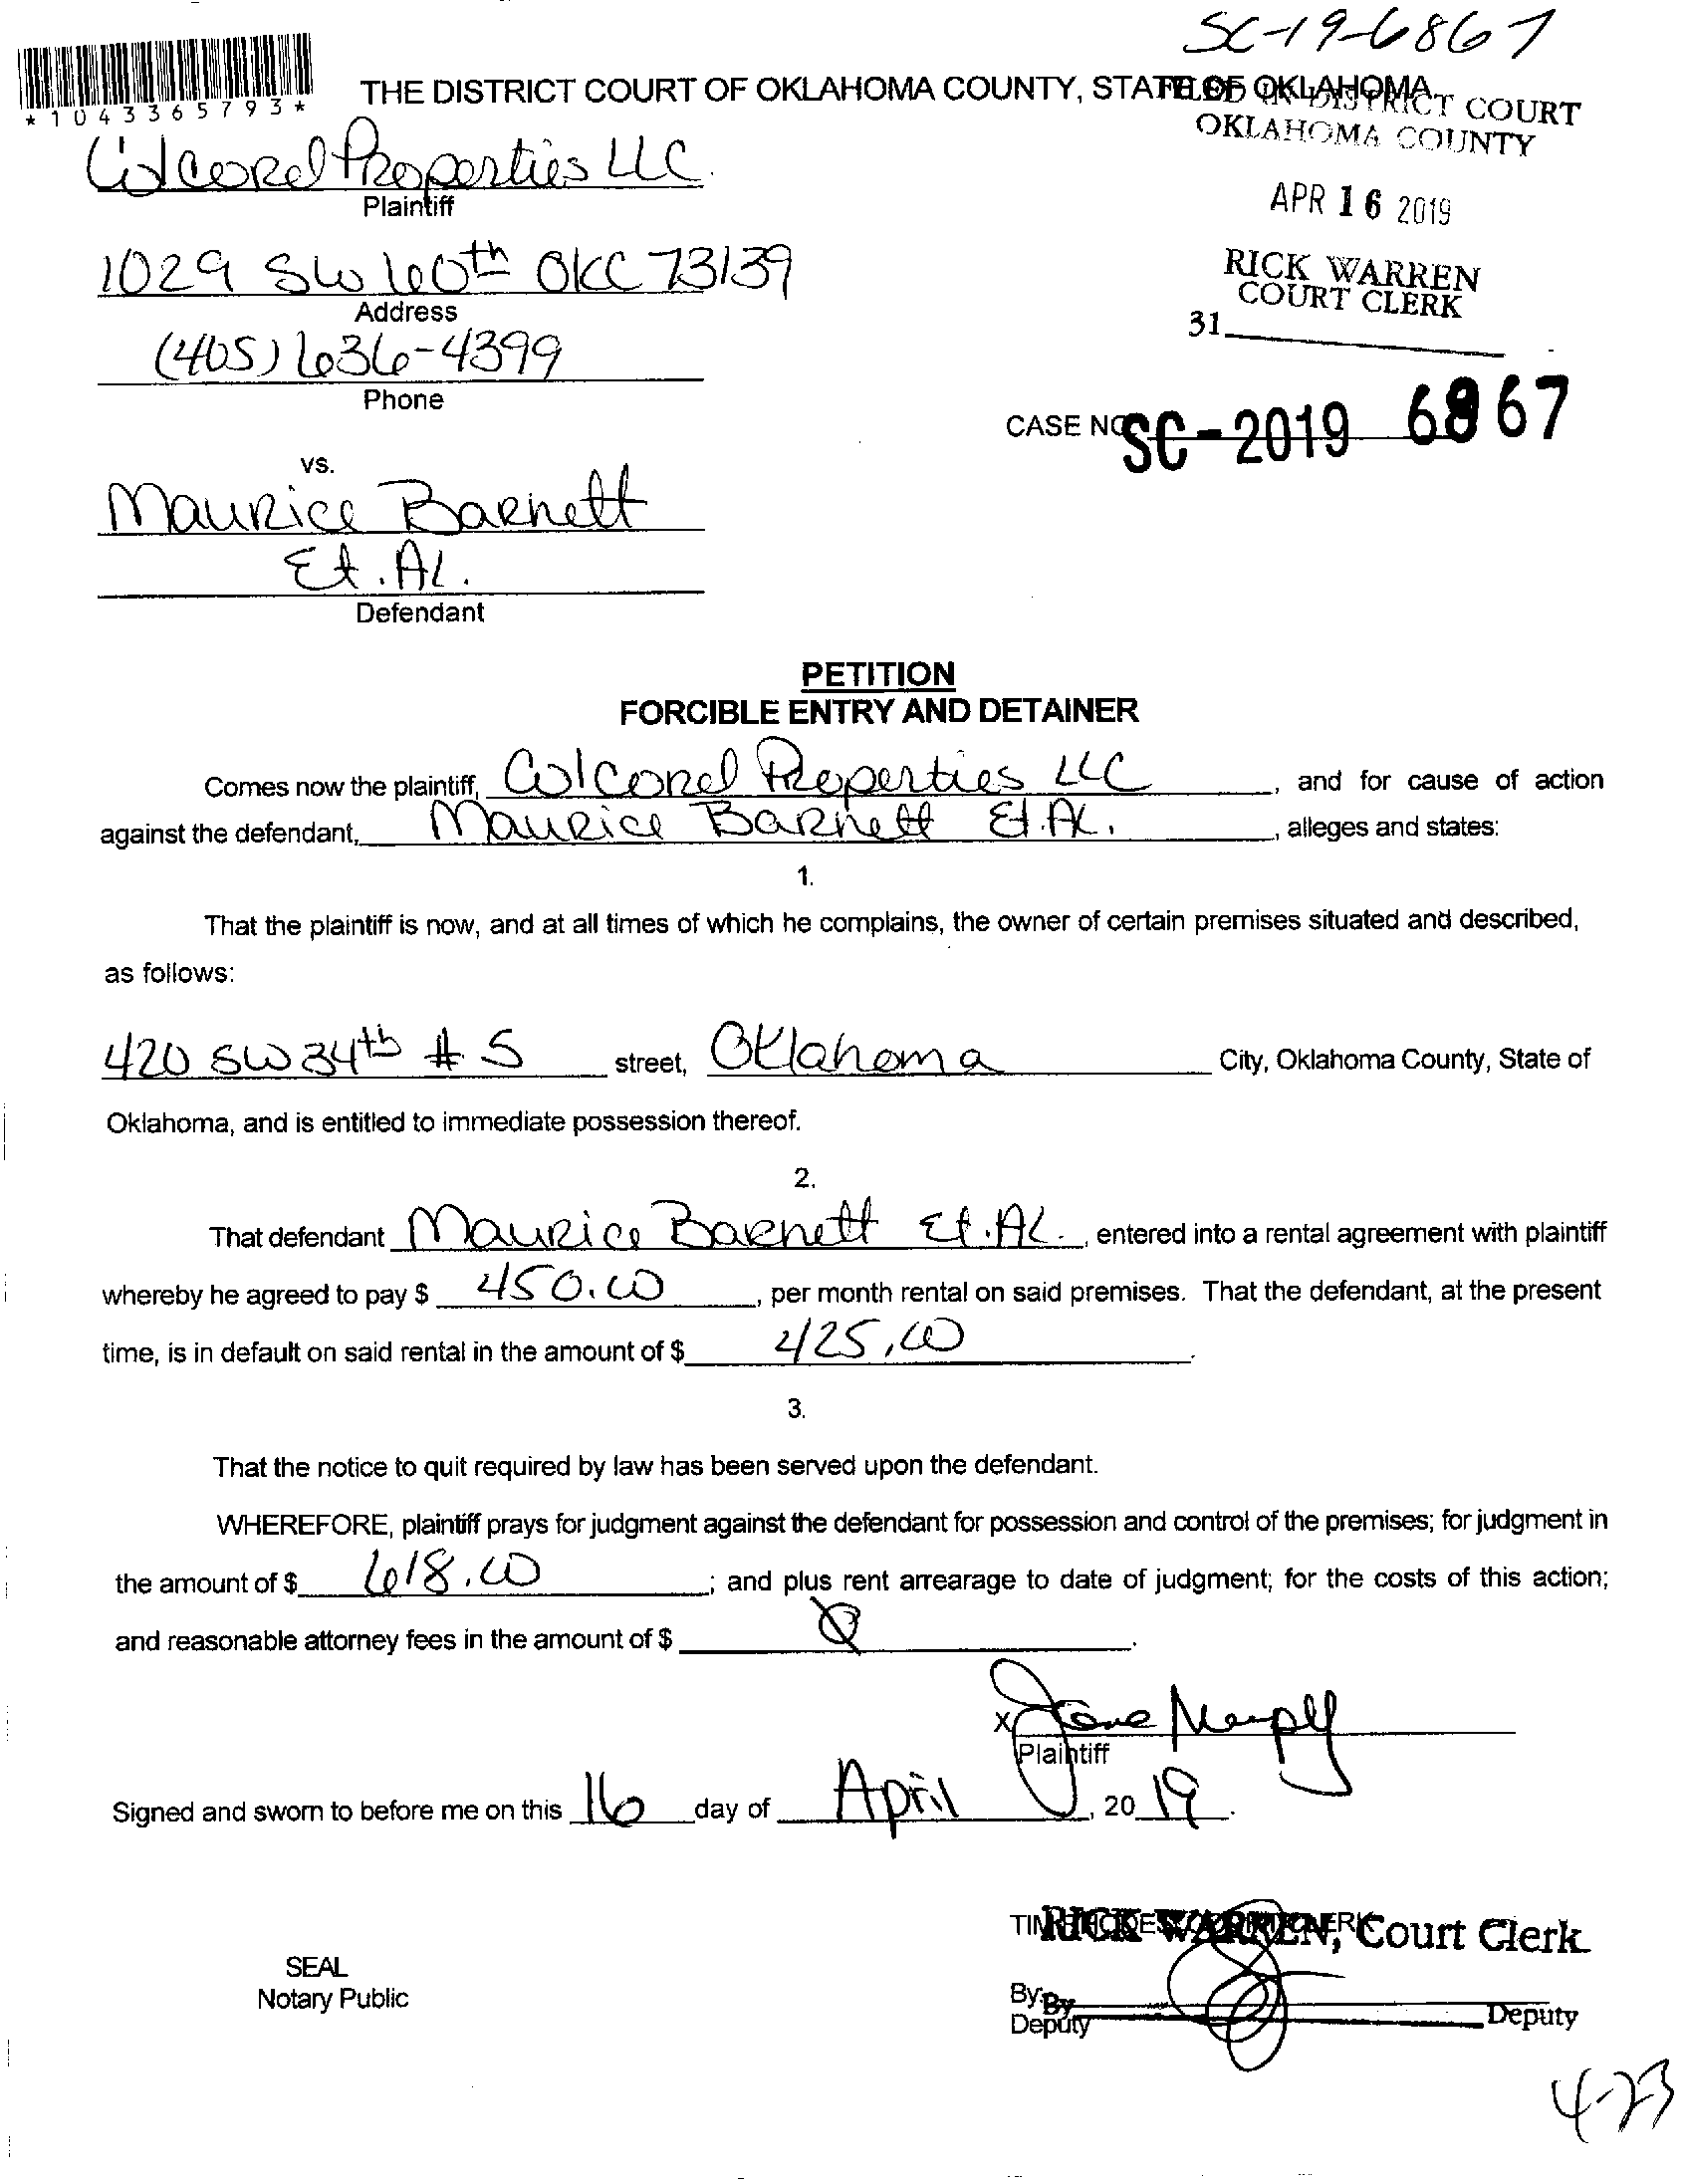 SC-19-6867
*1043365793*
THE DISTRICT COURT OF OKLAHOMA COUNTY, STATE OF OKLAHOMA
FILED IN DISTRICT COURT
OKLAHOMA COUNTY
Colconel Properties LLC
Plaintiff
APR 16 2019
1029 SW 60th OKC 73139
Address
RICK WARREN
COURT CLERK
31
(405) 636-4399
Phone
CASE NO. SC-2019 6867
vs.
Maurice Barnett
Et. Al.
Defendant
PETITION
FORCIBLE ENTRY AND DETAINER
Comes now the plaintiff, Colconel Properties LLC, and for cause of action
against the defendant, Maurice Barnett Et. Al., alleges and states:
1.
That the plaintiff is now, and at all times of which he complains, the owner of certain premises situated and described,
as follows:
420 SW 34th # S street, Oklahoma City, Oklahoma County, State of
Oklahoma, and is entitled to immediate possession thereof.
2.
That defendant Maurice Barnett Et. Al., entered into a rental agreement with plaintiff
whereby he agreed to pay $ 450.00, per month rental on said premises. That the defendant, at the present
time, is in default on said rental in the amount of $ 425.00.
3.
That the notice to quit required by law has been served upon the defendant.
WHEREFORE, plaintiff prays for judgment against the defendant for possession and control of the premises; for judgment in
the amount of $ 618.00; and plus rent arrearage to date of judgment; for the costs of this action;
and reasonable attorney fees in the amount of $ 0.
X
Plaintiff
Signed and sworn to before me on this 16 day of April, 2019.
RICK WARREN, Court Clerk
SEAL
Notary Public
By:
By Deputy
Deputy
4-23